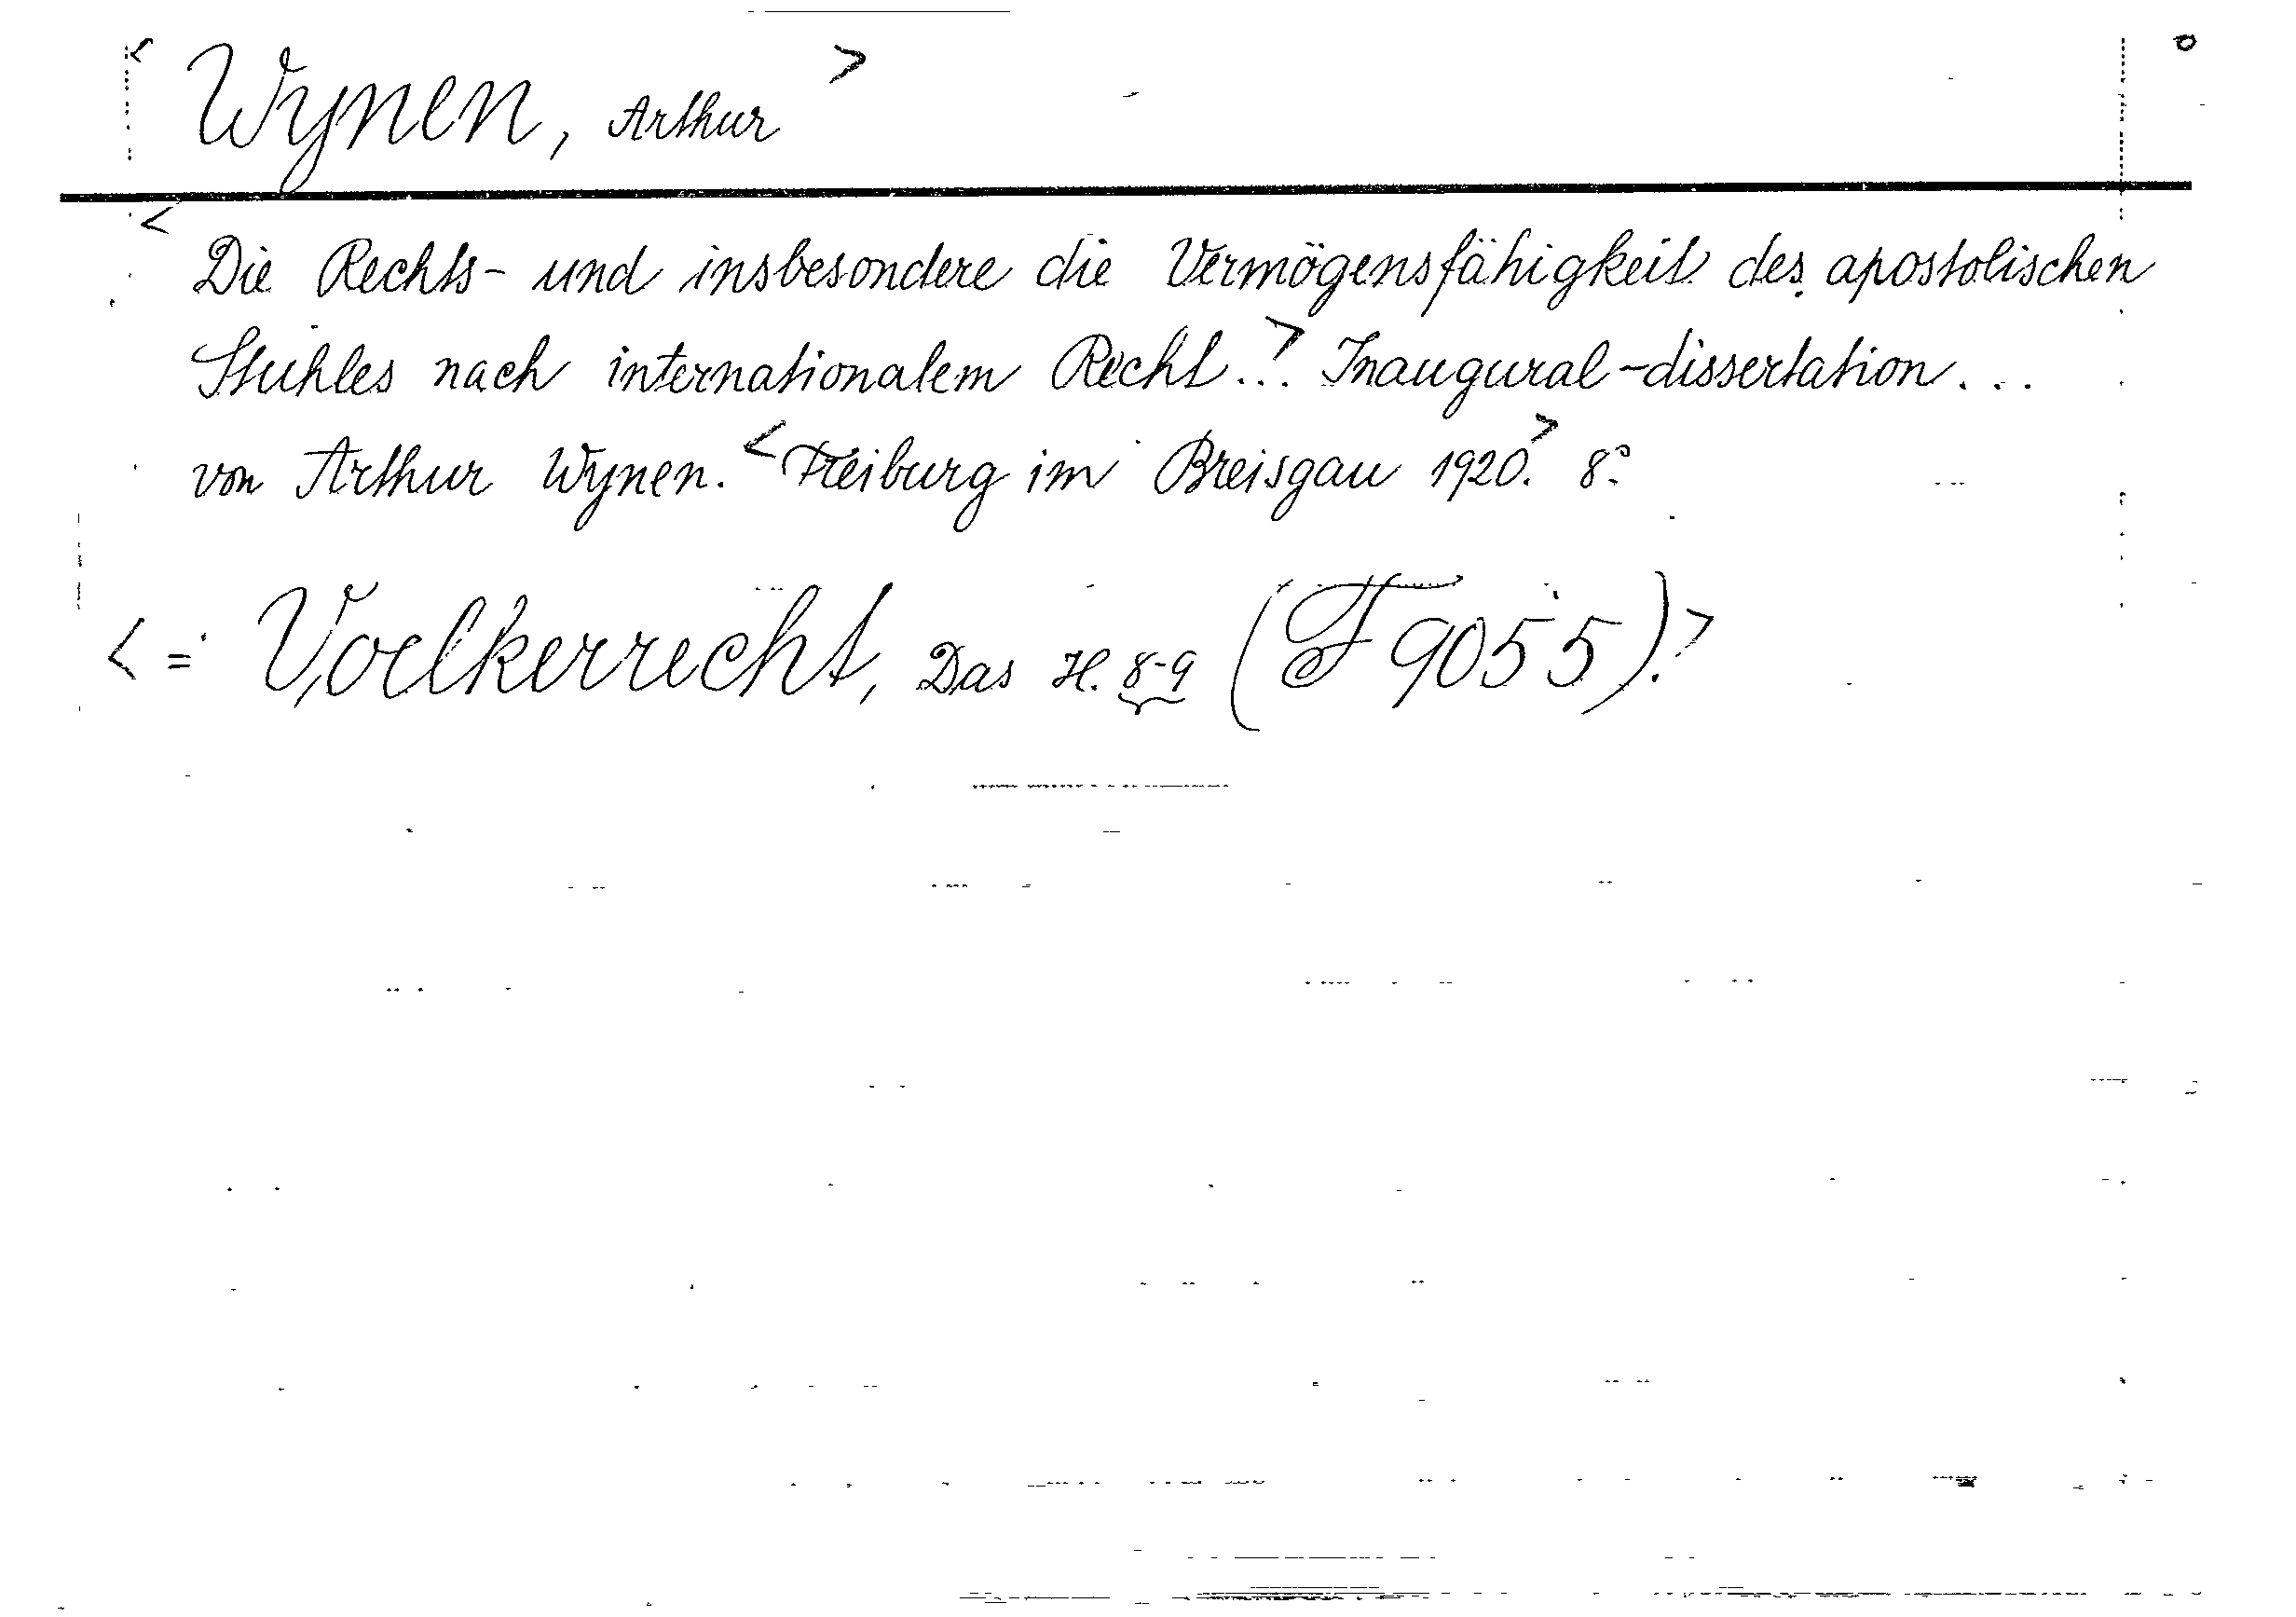 < Wynen, Arthur >
< Die Rechts- und insbesondere die Vermögensfähigkeit des apostolischen
Stuhles nach internationalem Recht...> Inaugural-dissertation...
von Arthur Wynen. <Freiburg im Breisgau 1920.> 8°.
< = Voelkerrecht, Das H. 8-9 (F 9055).>